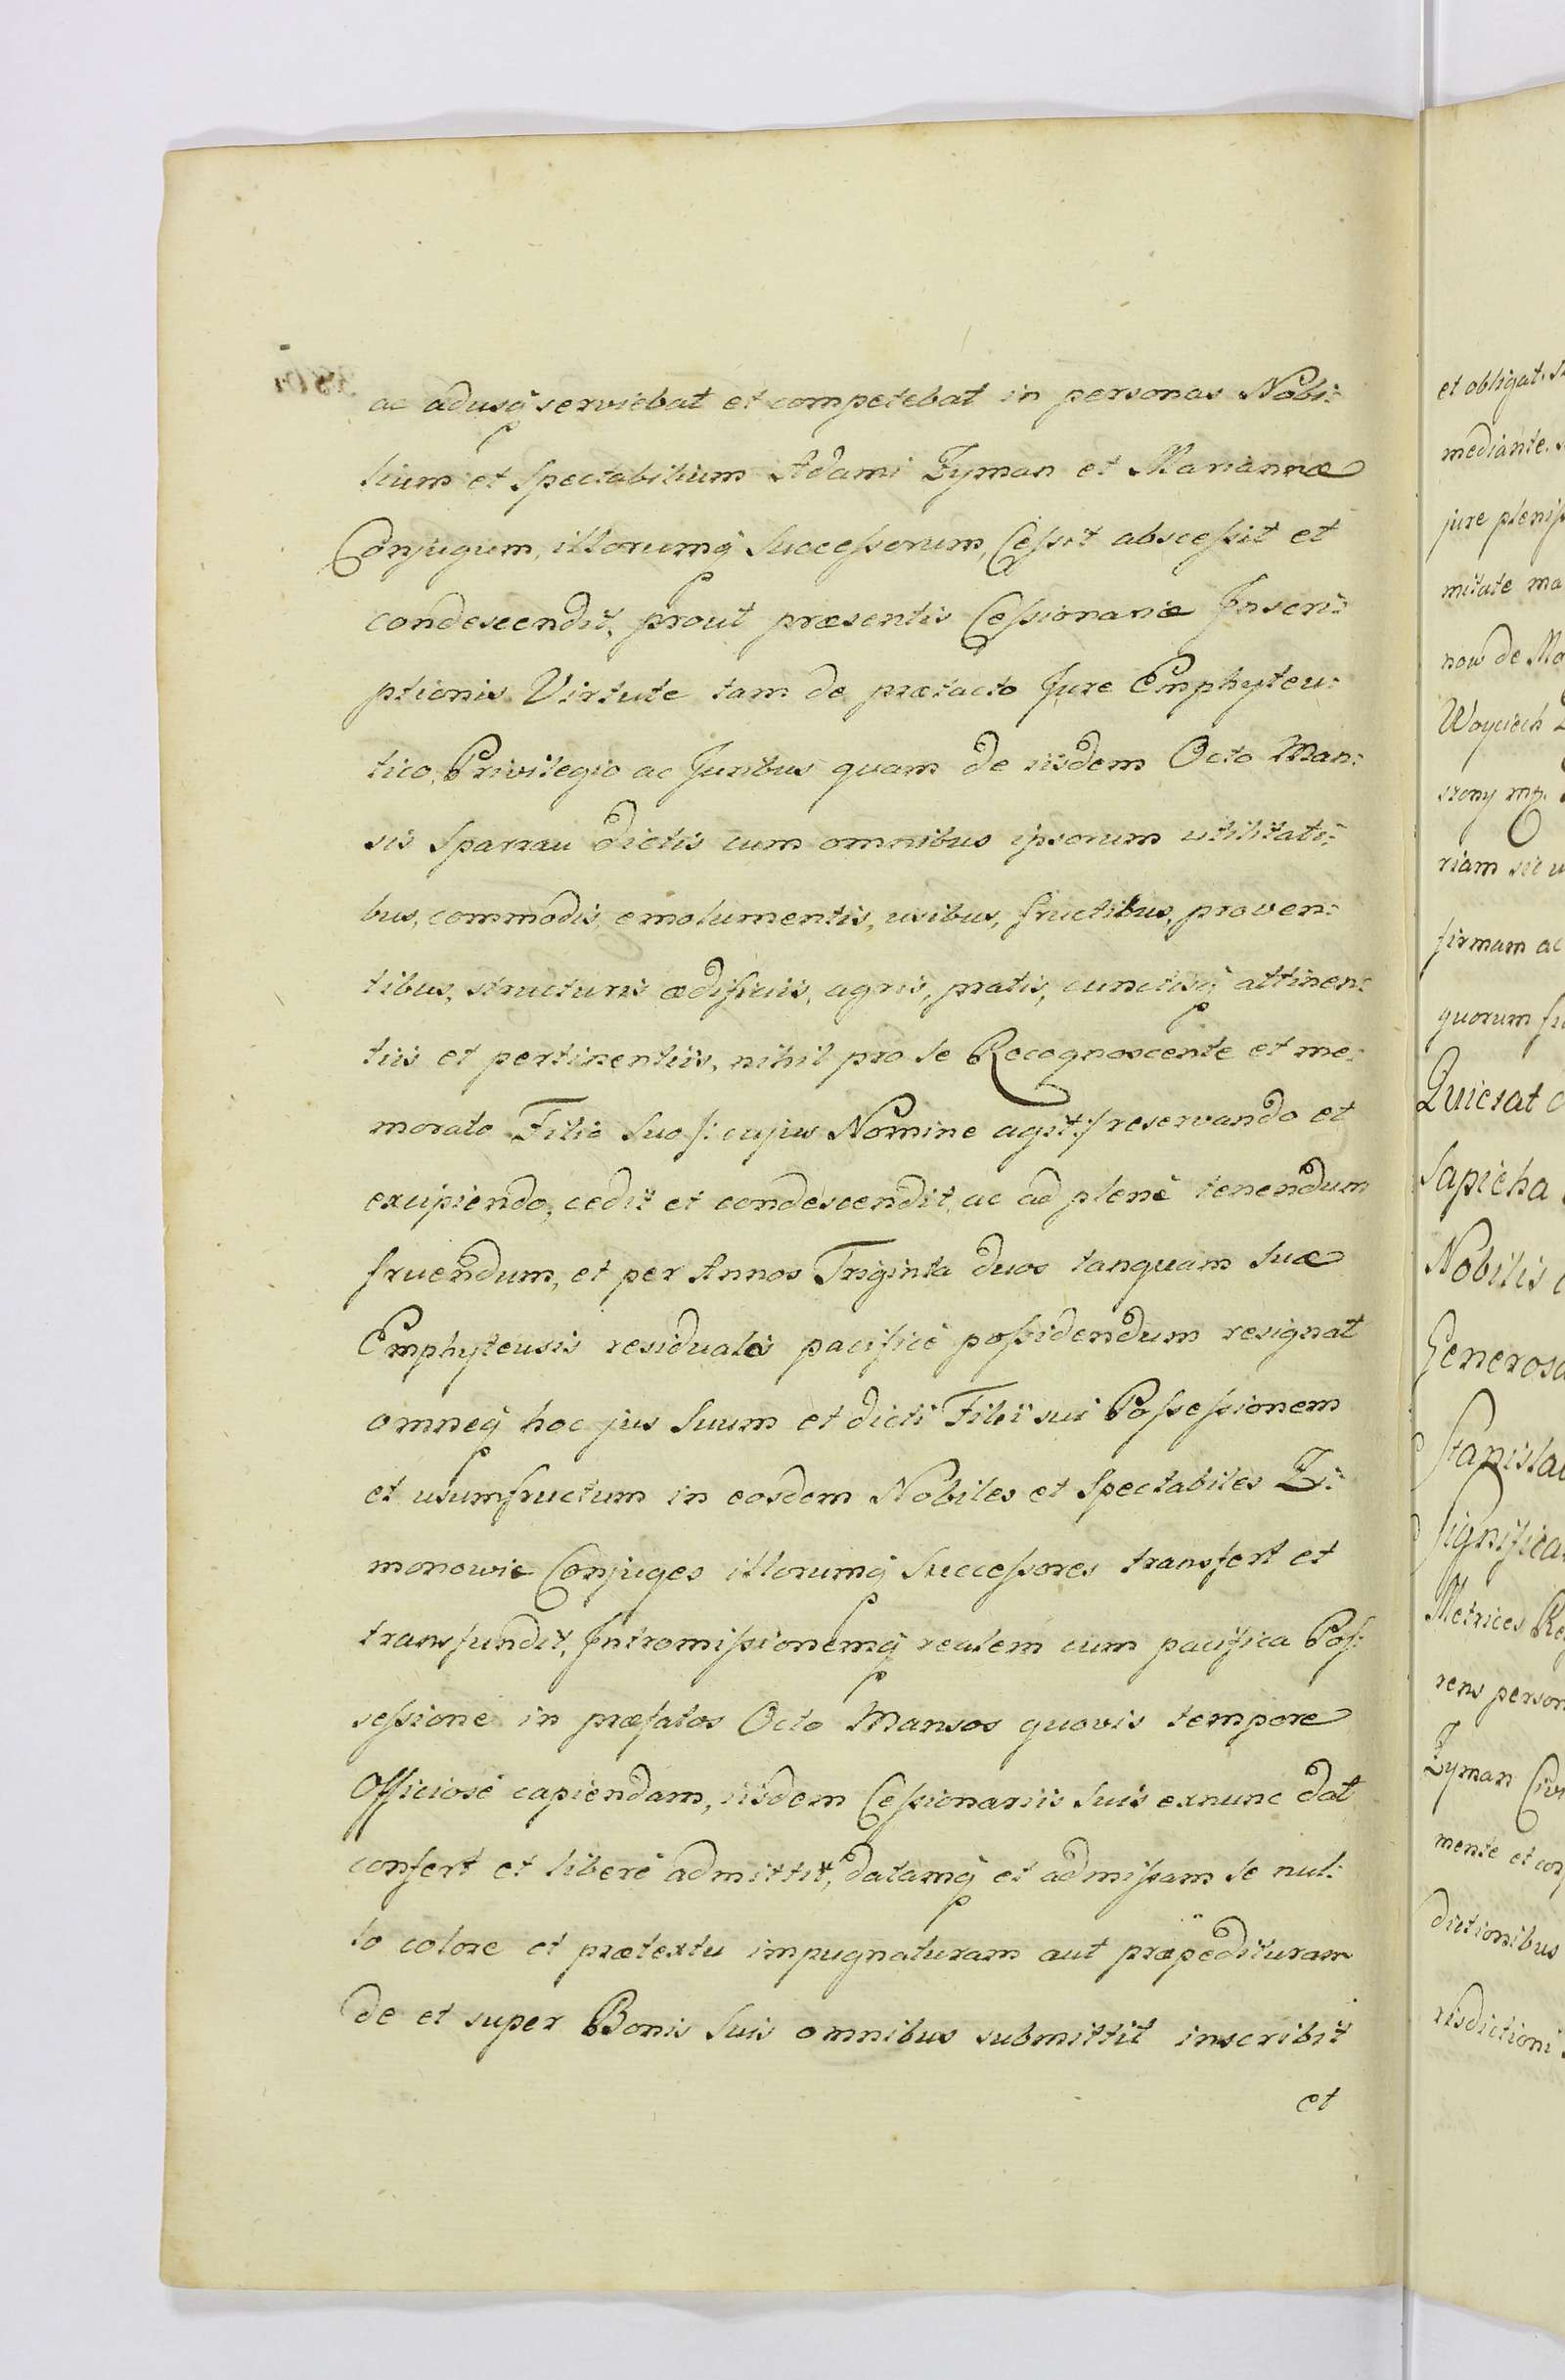 ac adusq serviebat et competebat in personas Nobi:
lium et Spectabilium Adami Zyman et Mariannæ
Conjugum, illorumq Successorum, Cessit abscessit et
condescendit, prout præsentis Cessionariæ Inscri:
ptionis Virtute tam de prætacto Jure Emphyteu:
tico, Privilegio ac Juribus quam de iisdem Octo Man:
sis Sparrau dictis cum omnibus ipsorum utilitati:
bus, commodis, emolumentis, usibus, fructibus, proven:
tibus, structuris ædificiis, agris, pratis, cunctisq attinen:
tiis et pertinentiis, nihil pro se Recognoscente et me:
morato Filio Suo /: cujus Nomine agit :/ reservando et
excipiendo, cedit et condescendit, ac ad plenè tenendum
fruendum, et per Annos Triginta duos tanquam Suæ
Emphyteusis residuales pacificè possidendum resignat
omneq hoc jus Suum et dicti Filii sui Possessionem
et usumfructum in eosdem Nobiles et Spectabiles Zi:
monowie Conjuges illorumq Successores transfert et
transfundit, Intromissionemq realem cum pacifica Pos:
sessione in præfatos Octo Mansos quovis tempore
Officiosè capiendam, iisdem Cessionariis Suis exnunc dat
confert et liberè admittit, datamq et admissam se nul:
lo colore et prætextu impugnaturam aut præpedituram
de et super Bonis Suis omnibus submittit inscribit
et
et obligat.
mediante.
jure
mitate
now de
Woyciech
szony mp.
riam sic
firmam ac
quorum
Quiesat
Sapieha
Nobilis
Metrices
rens
Zyman
mente et
dictionibus
risdictioni